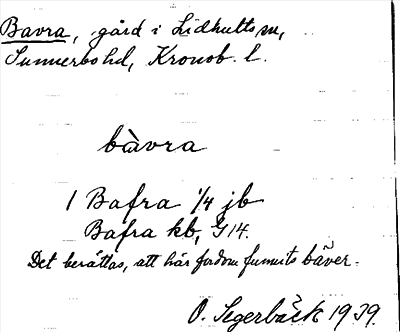 Bavra, gård i Lidhults sn,
Sunnerbo hd, Kronob. l.
bàvra
1 Bafra 1/4 jb
Bafra kb, G14.
Det berättas, att här fordom funnits bäver.
O. Segerbäck 1939.